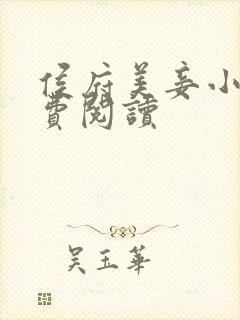 侯府美妾小
費閱讀
吴玉華